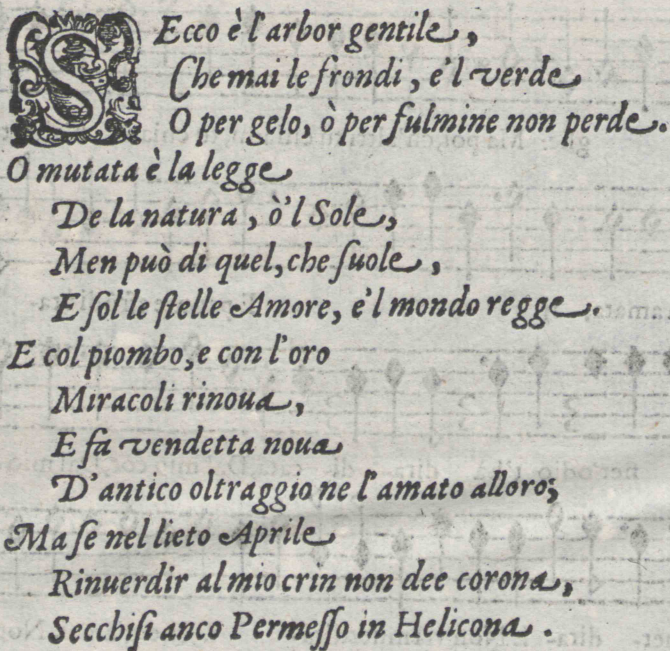 SEcco è l'arbor gentile,
Che mai le frondi, e'l verde
O per gelo, ò per fulmine non perde.
O mutata è la legge
De la natura, ò'l Sole,
Men può di quel, che ſuole,
E ſol le ſtelle Amore, e'l mondo regge.
E col piombo, e con l'oro
Miracoli rinoua,
E fa vendetta noua
D'antico oltraggio ne l'amato alloro;
Ma ſe nel lieto Aprile
Rinuerdir al mio crin non dee corona,
Secchiſi anco Permeſſo in Helicona.